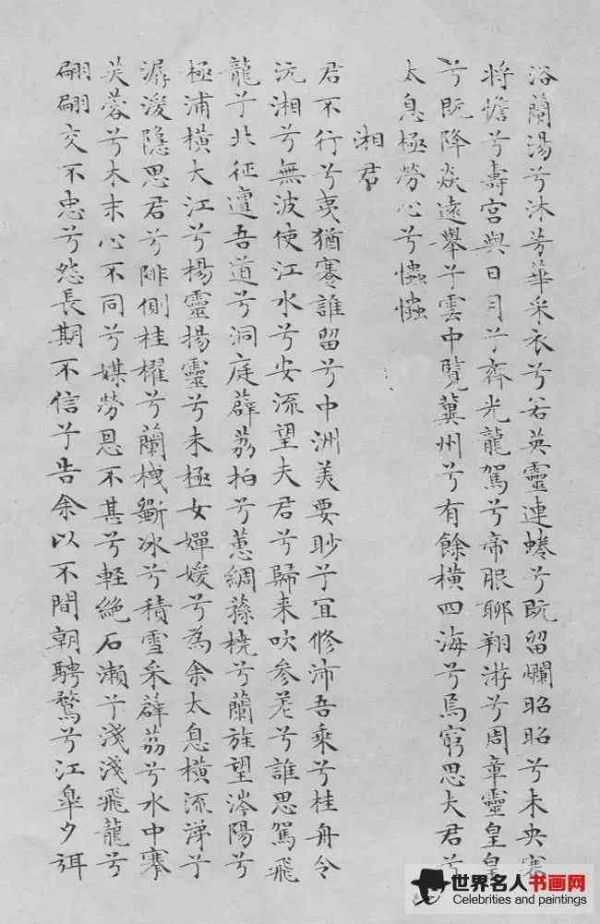 浴蘭湯兮沐芳華采衣兮若英靈連蜷兮既留爛昭昭兮未央蹇
將憺兮壽宮與日月兮齊光龍駕兮帝服聊翔游兮周章靈皇皇
兮既降焱遠舉兮雲中覽冀州兮有餘橫四海兮焉窮思夫君兮
太息極勞心兮𢥞𢥞
湘君
君不行兮夷猶蹇誰留兮中洲美要眇兮宜修沛吾乘兮桂舟令
沅湘兮無波使江水兮安流望夫君兮歸来吹參差兮誰思駕飛
龍兮北征邅吾道兮洞庭薜荔拍兮蕙綢蓀橈兮蘭旌望涔陽兮
極浦橫大江兮揚靈揚靈兮未極女嬋媛兮為余太息橫流涕兮
潺湲隱思君兮陫側桂櫂兮蘭枻斲冰兮積雪采薜荔兮水中搴
芙蓉兮木末心不同兮媒勞恩不甚兮軽絕石瀨兮淺淺飛龍兮
翩翩交不忠兮怨長期不信兮告余以不間朝騁騖兮江皋夕弭
世界名人书画网
Celebrities and paintings